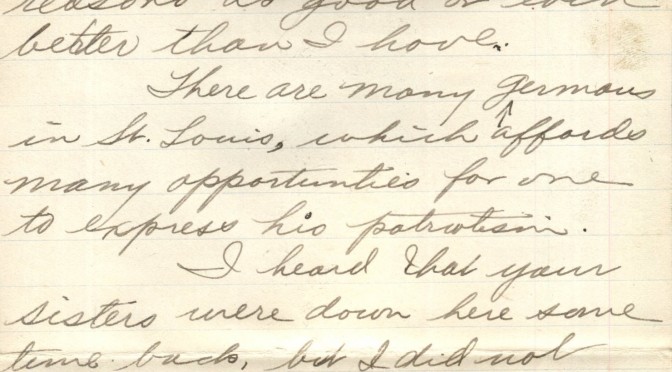 reasons as good or even
better than I have.
There are many Germans
in St. Louis, which affords
many opportunties for one
to express his patriotism.
I heard that your
sisters were down here some
time back, but I did not